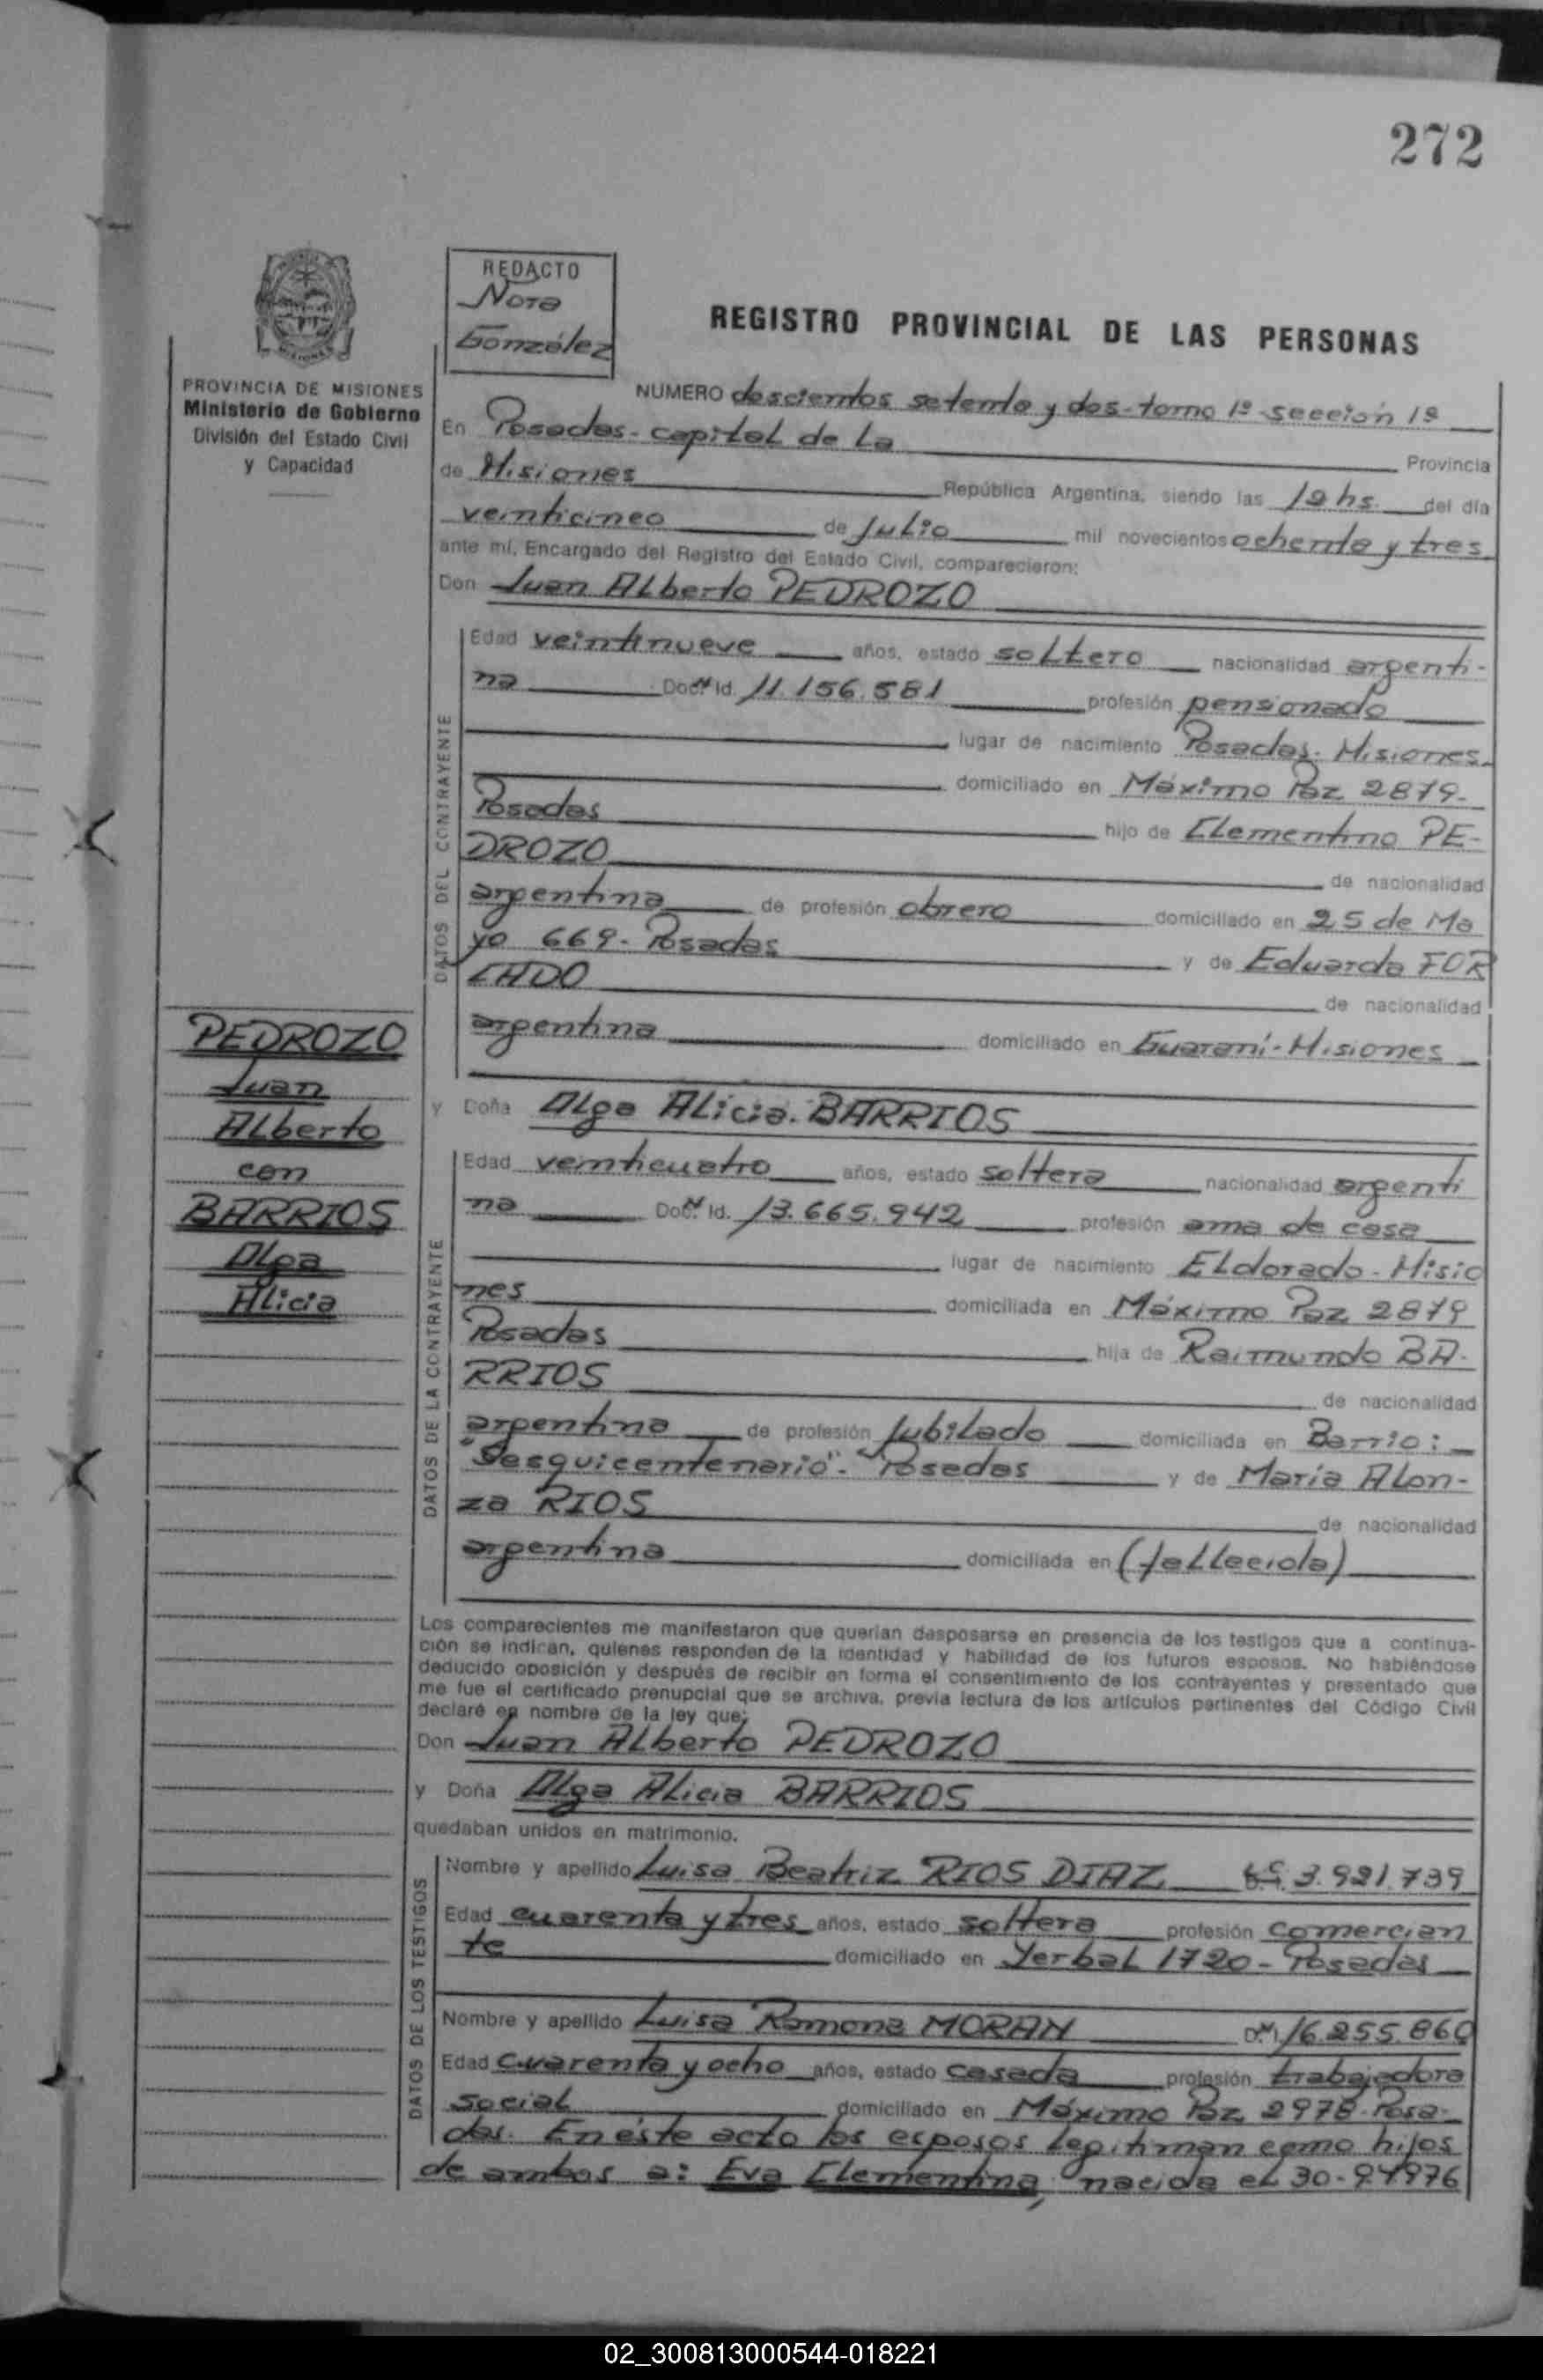 272
REDACTO
Nora
González
REGISTRO PROVINCIAL DE LAS PERSONAS
PROVINCIA DE MISIONES
Ministerio de Gobierno
División del Estado Civil
y Capacidad
NUMERO doscientos setenta y dos-tomo 1º-sección 1ª
En Posadas-capital de La Provincia
de Misiones República Argentina, siendo las hs. del día
veinticinco de Julio mil novecientos ochenta y tres
ante mí, Encargado del Registro del Estado Civil, comparecieron:
Don Juan Alberto PEDROZO
DATOS DEL CONTRAYENTE
Edad veintinueve años, estado soltero nacionalidad argenti-
na Doc. Id. 11.156.581 profesión pensionado
lugar de nacimiento Posadas-Misiones
domiciliado en Máximo Paz 2879-
Posadas hijo de Clementino PE-
DROZO de nacionalidad
argentina de profesión obrero domiciliado en 25 de Ma
yo 669-Posadas y de Eduarda FOR
CADO de nacionalidad
argentina domiciliado en Guaraní-Misiones
PEDROZO
Juan
Alberto
con
BARRIOS
Olga
Alicia
y Doña Olga Alicia BARRIOS
DATOS DE LA CONTRAYENTE
Edad veinticuatro años, estado soltera nacionalidad argenti
na Doc. Id. 13.665.942 profesión ama de casa
lugar de nacimiento Eldorado-Misio
nes domiciliada en Máximo Paz 2879
Posadas hija de Raimundo BA-
RRIOS de nacionalidad
argentina de profesión Jubilado domiciliada en Barrio:
"Sesquicentenario"-Posadas y de María Alon-
za RIOS de nacionalidad
argentina domiciliada en (fallecida)
Los comparecientes me manifestaron que querían desposarse en presencia de los testigos que a continua-
ción se indican, quienes responden de la identidad y habilidad de los futuros esposos. No habiéndose
deducido oposición y después de recibir en forma el consentimiento de los contrayentes y presentado que
me fue el certificado prenupcial que se archiva, previa lectura de los artículos pertinentes del Código Civil
declaré en nombre de la ley que:
Don Juan Alberto PEDROZO
y Doña Olga Alicia BARRIOS
quedaban unidos en matrimonio.
DATOS DE LOS TESTIGOS
Nombre y apellido Luisa Beatriz RIOS DIAZ 3.921.739
Edad cuarenta y tres años, estado soltera profesión comercian
te domiciliado en Yerbal 1720-Posadas
Nombre y apellido Luisa Ramona MORAN 16.255.860
Edad cuarenta y ocho años, estado casada profesión trabajadora
social domiciliado en Máximo Paz 2978-Posa-
das. En éste acto los esposos legitiman como hijos
de ambos a: Eva Clementina, nacida el
02_300813000544-018221